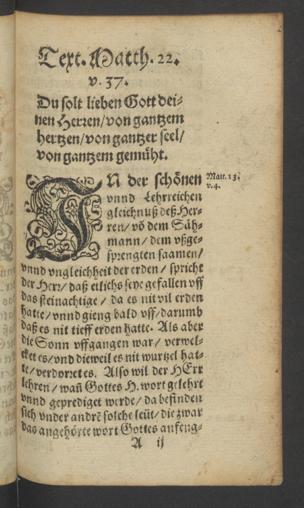 Text. Matth. 22.
v. 37.
Du solt lieben Gott dei-
nen Herren/von gantzem
hertzen/von gantzer seel/
von gantzem gemüht.
IN der schönen
Matt. 13.
v. 4.
vnnd Lehrreichen
gleichnuß deß Her-
ren/ võ dem Säh-
mann/ dem vßge-
sprengten saamen/
vnnd vngleichheit der erden / spricht
der Herr/ daß etlichs seye gefallen vff
das steinachtige / da es nit vil erden
hatte/ vnnd gieng bald vff/ darumb
daß es nit tieff erden hatte. Als aber
die Sonn vffgangen war/ verwel-
cket es/vnd dieweil es nit wurtzel hat-
te/ verdorret es. Also wil der HErr
lehren/ wañ Gottes H. wort gelehrt
vnnd geprediget werde/ da befinden
sich vnder andrẽ solche leüt/ die zwar
das angehörte wort Gottes anfeng-
A ij